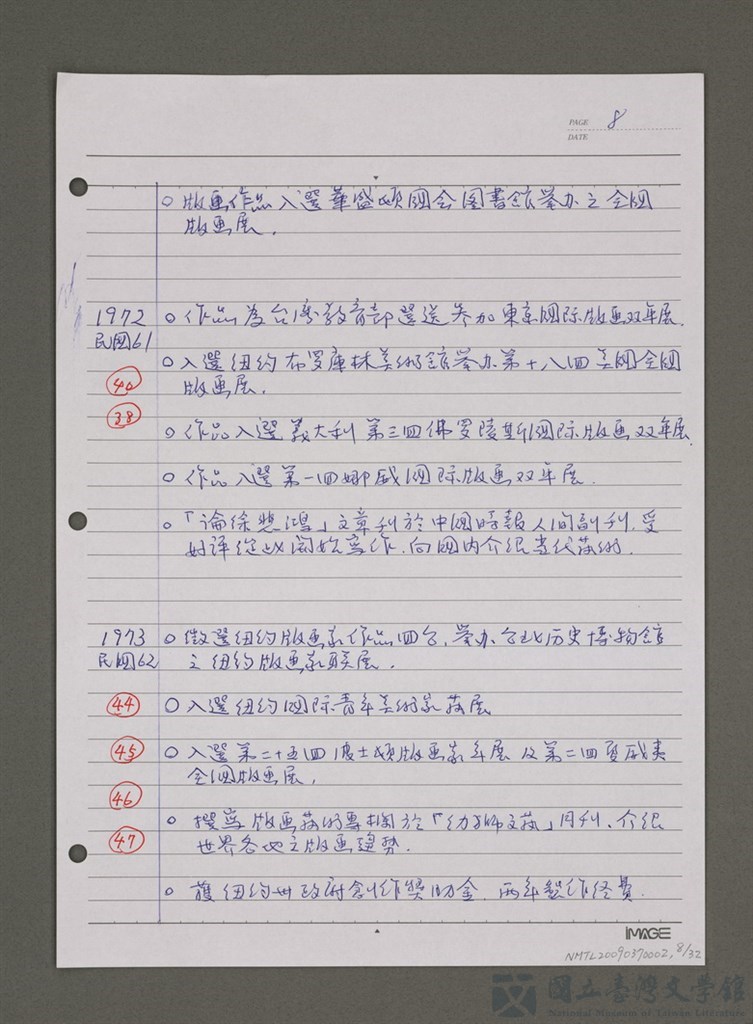 PAGE 8
DATE
○ 版画作品入選華盛頓國会图書館举办之全國
版画展.
1972 ○ 作品為台湾教育部選送参加東京國际版画双年展.
民國61
○ 入選纽约布罗庫林美術館举办第十八回美國全國
版画展.
40
38
○ 作品入選義大利第三回佛罗陵斯國际版画双年展.
○ 作品入選第一回挪威國际版画双年展.
○ 「論徐悲鴻」文章刊於中國時報人间副刊,受
好評從此闹始寫作.向國内介绍当代藝術.
1973 ○ 徵選纽约版画家作品回台,举办台北历史博物館
民國62 之纽约版画家联展.
44 ○ 入選纽约國际青年美術家藝展
45 ○ 入選第二十五回波士頓版画家年展及第二回夏威夷
全國版画展.
46
○ 撰寫版画藝術專栏於「幼獅文藝」月刊、介绍
47 世界各地之版画趋勢.
○ 獲纽约州政府創作獎助金.两年製作经費.
IMAGE
NMTL20090370002, 8/32
國立臺灣文學館
National Museum of Taiwan Literature